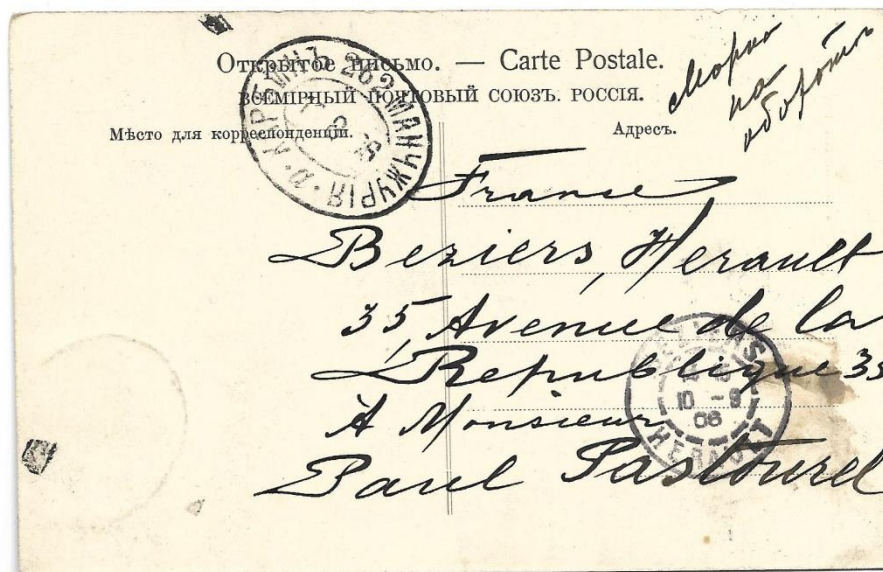 Открытое письмо. — Carte Postale.
ВСЕМІРНЫЙ ПОЧТОВЫЙ СОЮЗЪ. РОССІЯ.
Мѣсто для корреспонденціи.
Адресъ.
Марка
на
оборотѣ
ХАРБИНЪ 262 МАНЧЖУРІЯ
France
Beziers, Herault
35, Avenue de la
Republique 35
A Monsieur
Paul Pastourel
BEZIERS
10 - 9
06
HERAULT